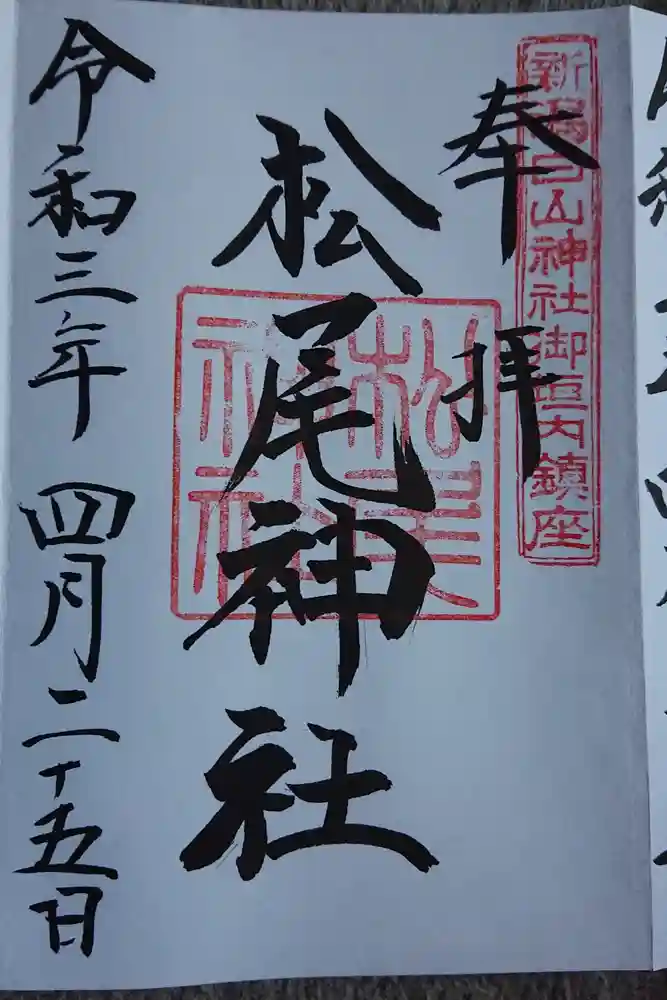 新潟白山神社御垣内鎮座
奉拝
松尾神社
松尾
神社
令和三年 四月二十五日